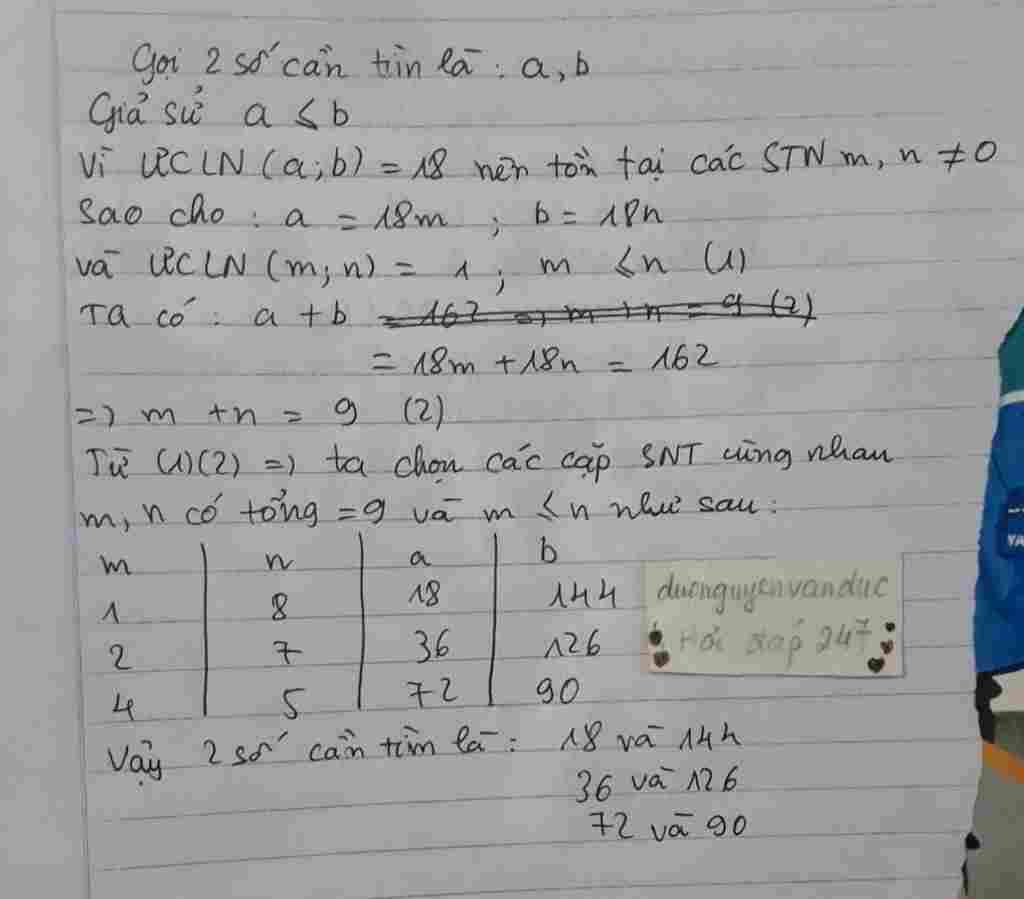 Gọi 2 số cần tìm là : a, b
Giả sử a ≤ b
Vì ƯCLN (a; b) = 18 nên tồn tại các STN m, n ≠ 0
sao cho : a = 18m ; b = 18n
và ƯCLN (m; n) = 1 ; m ≤ n (1)
Ta có : a + b = 162 => m + n = 9 (2)
= 18m + 18n = 162
=> m + n = 9 (2)
Từ (1)(2) => ta chọn các cặp SNT cùng nhau
m, n có tổng = 9 và m ≤ n như sau :
m n a b
1 8 18 144
2 7 36 126
4 5 72 90
Vậy 2 số cần tìm là : 18 và 144
36 và 126
72 và 90
ducnguyenvanduc
Hỏi đáp 247